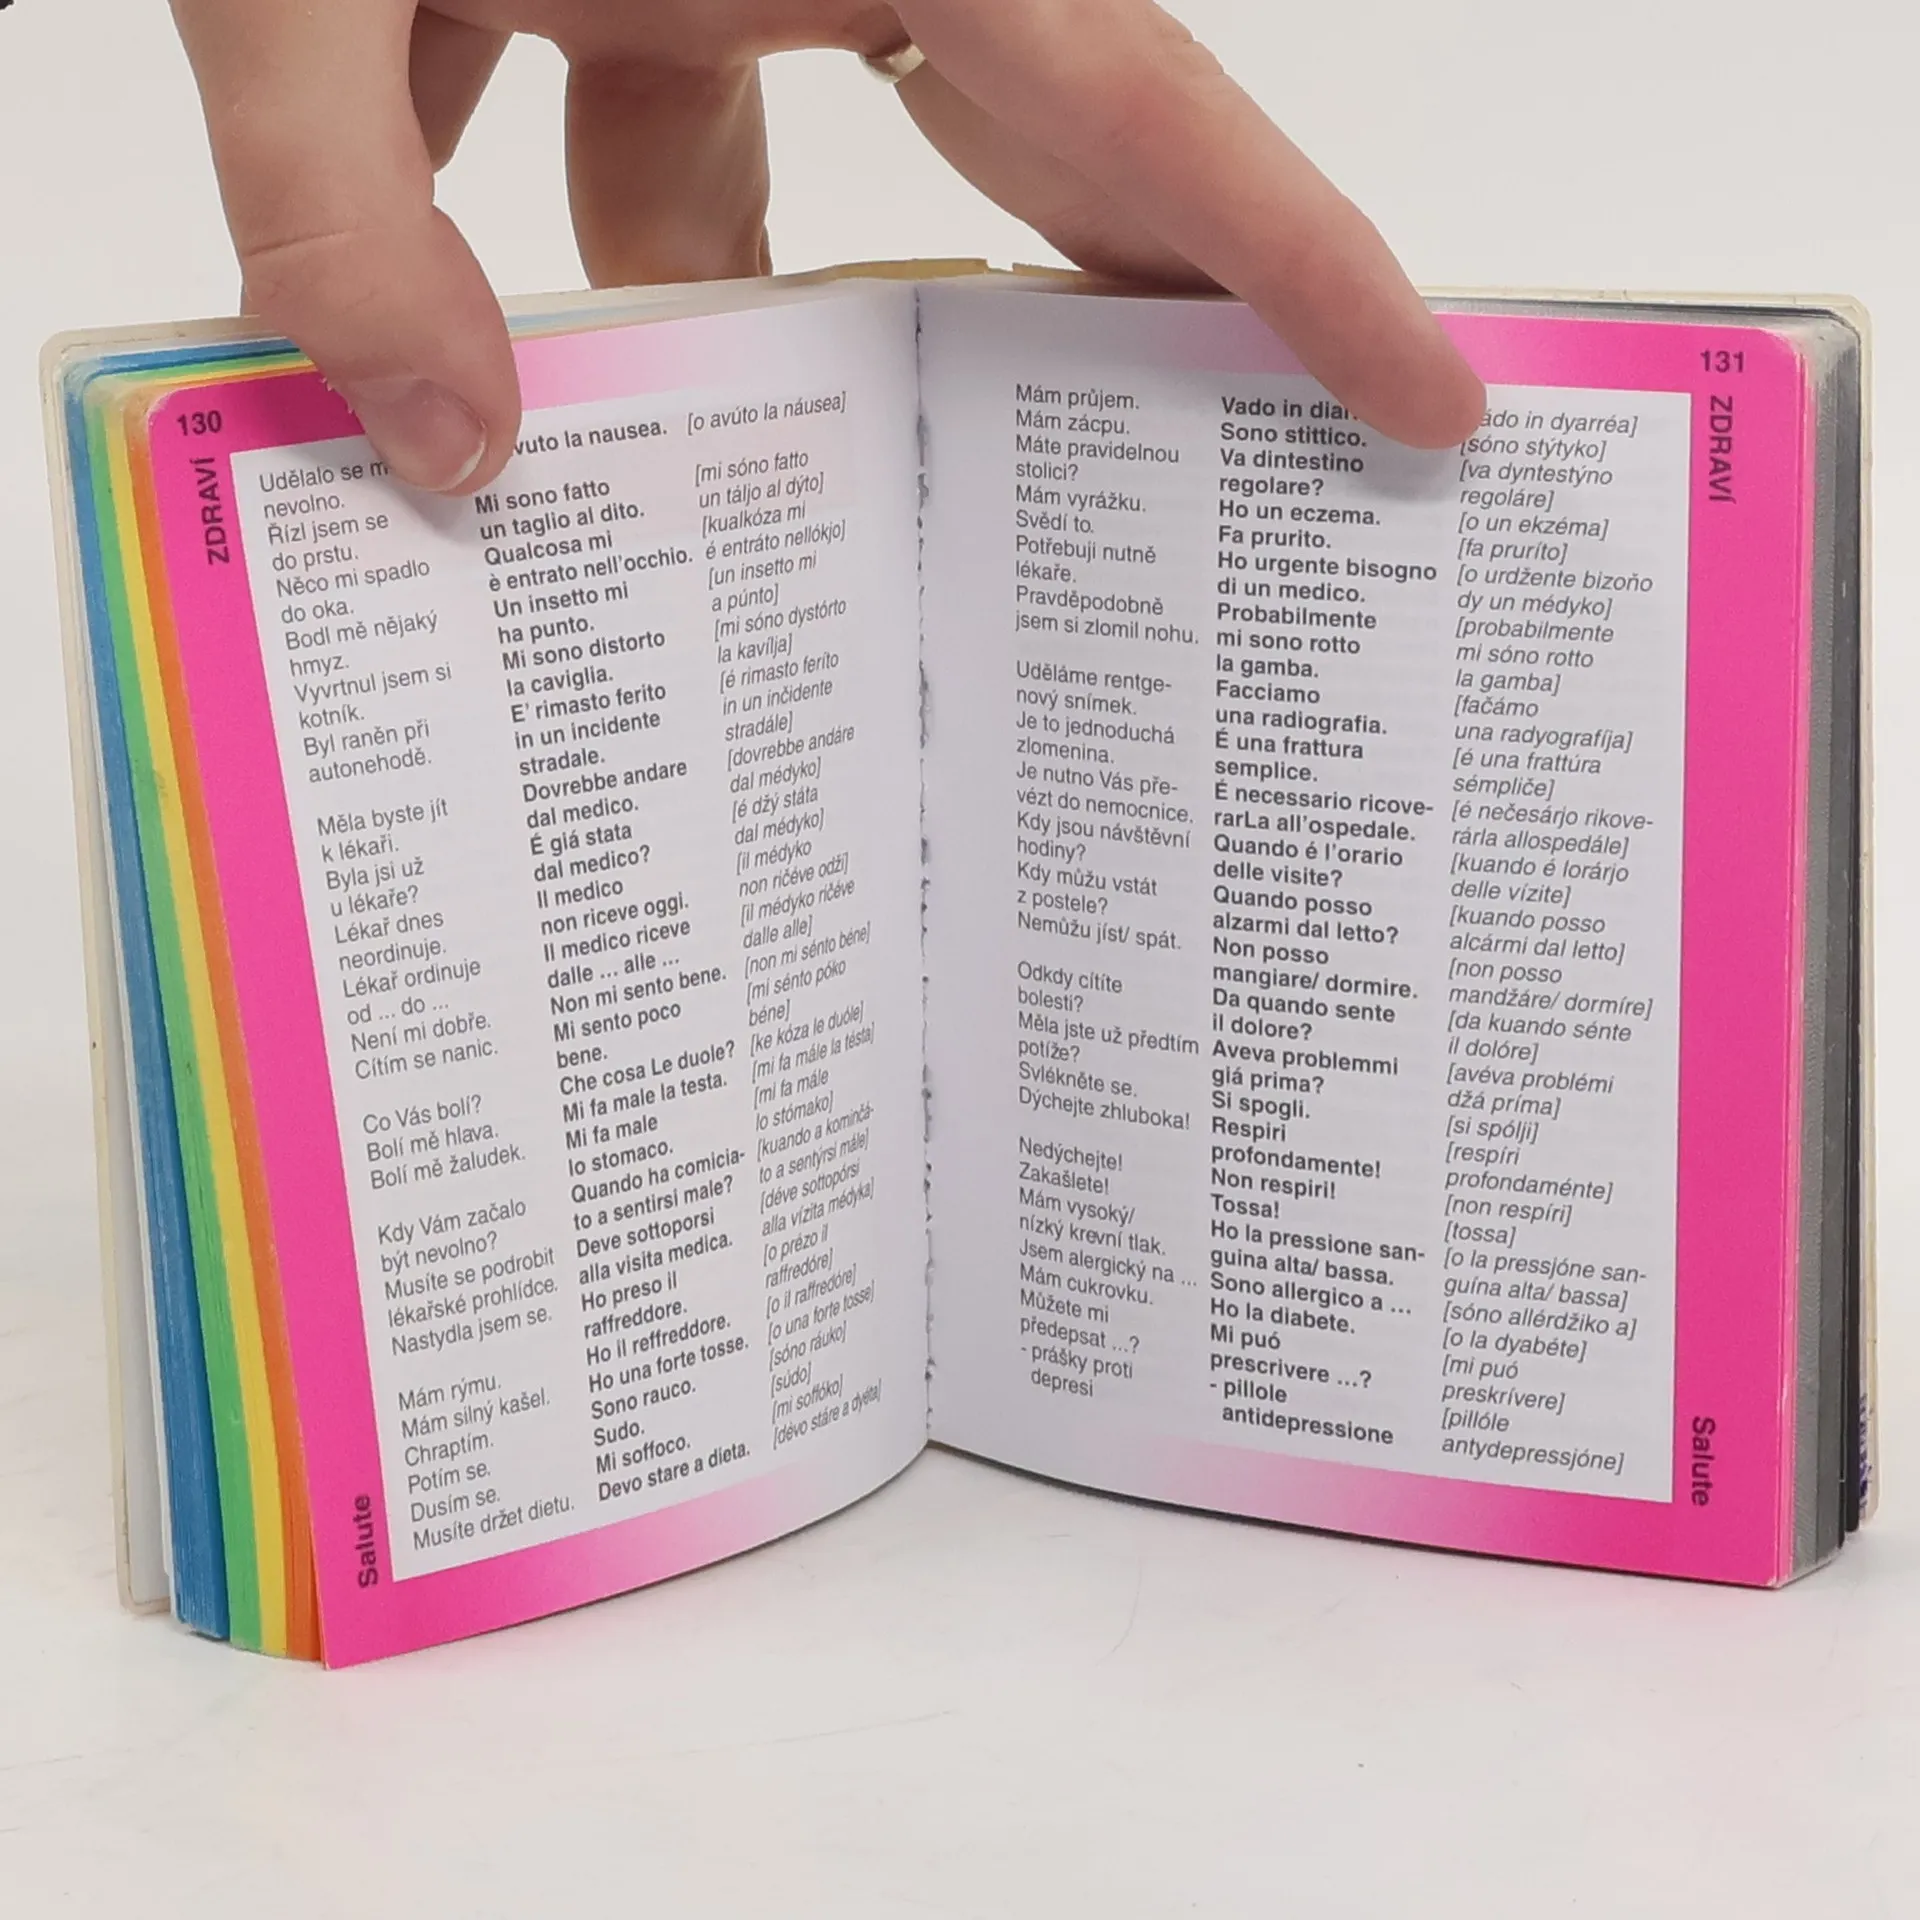 130
ZDRAVÍ
Udělalo se
nevolno.
Řízl jsem se
do prstu.
Něco mi spadlo
do oka.
Bodl mě nějaký
hmyz.
Vyvrtnul jsem si
kotník.
Byl raněn při
autonehodě.
Měla byste jít
k lékaři.
Byla jsi už
u lékaře?
Lékař dnes
neordinuje.
Lékař ordinuje
od ... do ...
Není mi dobře.
Cítím se nanic.
Co Vás bolí?
Bolí mě hlava.
Bolí mě žaludek.
Kdy Vám začalo
být nevolno?
Musíte se podrobit
lékařské prohlídce.
Nastydla jsem se.
Mám rýmu.
Mám silný kašel.
Chraptím.
Potím se.
Dusím se.
Musíte držet dietu.
la nausea.
Mi sono fatto
un taglio al dito.
Qualcosa mi
è entrato nell'occhio.
Un insetto mi
ha punto.
Mi sono distorto
la caviglia.
E' rimasto ferito
in un incidente
stradale.
Dovrebbe andare
dal medico.
É giá stata
dal medico?
Il medico
non riceve oggi.
Il medico riceve
dalle ... alle ...
Non mi sento bene.
Mi sento poco
bene.
Che cosa Le duole?
Mi fa male la testa.
Mi fa male
lo stomaco.
Quando ha comicia-
to a sentirsi male?
Deve sottoporsi
alla visita medica.
Ho preso il
raffreddore.
Ho il reffreddore.
Ho una forte tosse.
Sono rauco.
Sudo.
Mi soffoco.
Devo stare a dieta.
[o avúto la náusea]
[mi sóno fatto
un táljo al dýto]
[kualkóza mi
é entráto nellókjo]
[un insetto mi
a púnto]
[mi sóno dystórto
la kavílja]
[é rimasto feríto
in un inčidente
stradále]
[dovrebbe andáre
dal médyko]
[é džý státa
dal médyko]
[il médyko
non ričéve odži]
[il médyko ričéve
dalle alle]
[non mi sénto béne]
[mi sénto póko
béne]
[ke kóza le duóle]
[mi fa mále la tésta]
[mi fa mále
lo stómako]
[kuando a kominčá-
to a sentýrsi mále]
[déve sottopórsi
alla vízita médyka]
[o prézo il
raffredóre]
[o il raffredóre]
[o una forte tosse]
[sóno ráuko]
[súdo]
[mi soffóko]
[dévo stáre a dyéta]
Salute
131
ZDRAVÍ
Mám průjem.
Mám zácpu.
Máte pravidelnou
stolici?
Mám vyrážku.
Svědí to.
Potřebuji nutně
lékaře.
Pravděpodobně
jsem si zlomil nohu.
Uděláme rentge-
nový snímek.
Je to jednoduchá
zlomenina.
Je nutno Vás pře-
vézt do nemocnice.
Kdy jsou návštěvní
hodiny?
Kdy můžu vstát
z postele?
Nemůžu jíst/ spát.
Odkdy cítíte
bolesti?
Měla jste už předtím
potíže?
Svlékněte se.
Dýchejte zhluboka!
Nedýchejte!
Zakašlete!
Mám vysoký/
nízký krevní tlak.
Jsem alergický na ...
Mám cukrovku.
Můžete mi
předepsat ...?
- prášky proti
depresi
Vado in
Sono stittico.
Va dintestino
regolare?
Ho un eczema.
Fa prurito.
Ho urgente bisogno
di un medico.
Probabilmente
mi sono rotto
la gamba.
Facciamo
una radiografia.
É una frattura
semplice.
É necessario ricove-
rarLa all'ospedale.
Quando é l'orario
delle visite?
Quando posso
alzarmi dal letto?
Non posso
mangiare/ dormire.
Da quando sente
il dolore?
Aveva problemmi
giá prima?
Si spogli.
Respiri
profondamente!
Non respiri!
Tossa!
Ho la pressione san-
guina alta/ bassa.
Sono allergico a ...
Ho la diabete.
Mi puó
prescrivere ...?
- pillole
antidepressione
in dyarréa]
[sóno stýtyko]
[va dyntestýno
regoláre]
[o un ekzéma]
[fa pruríto]
[o urdžente bizoňo
dy un médyko]
[probabilmente
mi sóno rotto
la gamba]
[fačámo
una radyografíja]
[é una frattúra
sémpliče]
[é nečesárjo rikove-
rárla allospedále]
[kuando é lorárjo
delle vízite]
[kuando posso
alcármi dal letto]
[non posso
mandžáre/ dormíre]
[da kuando sénte
il dolóre]
[avéva problémi
džá príma]
[si spólji]
[respíri
profondaménte]
[non respíri]
[tossa]
[o la pressjóne san-
guína alta/ bassa]
[sóno allérdžiko a]
[o la dyabéte]
[mi puó
preskrívere]
[pillóle
antydepressjóne]
Salute